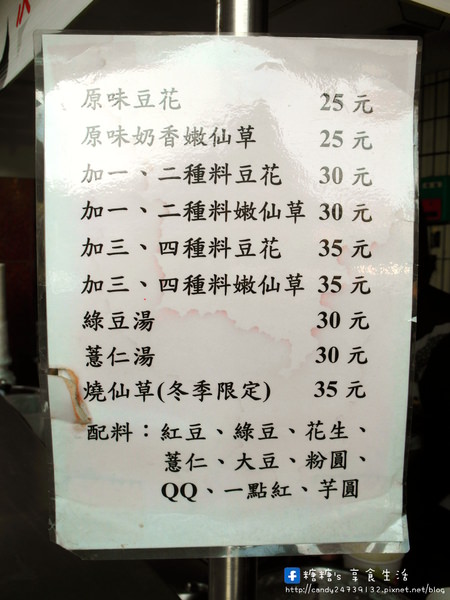 原味豆花 25 元
原味奶香嫩仙草 25 元
加一、二種料豆花 30 元
加一、二種料嫩仙草 30 元
加三、四種料豆花 35 元
加三、四種料嫩仙草 35 元
綠豆湯 30 元
薏仁湯 30 元
燒仙草(冬季限定) 35 元
配料：紅豆、綠豆、花生、
薏仁、大豆、粉圓、
QQ、一點紅、芋圓
糖糖's 享食生活
http://candy24739132.pixnet.net/blog